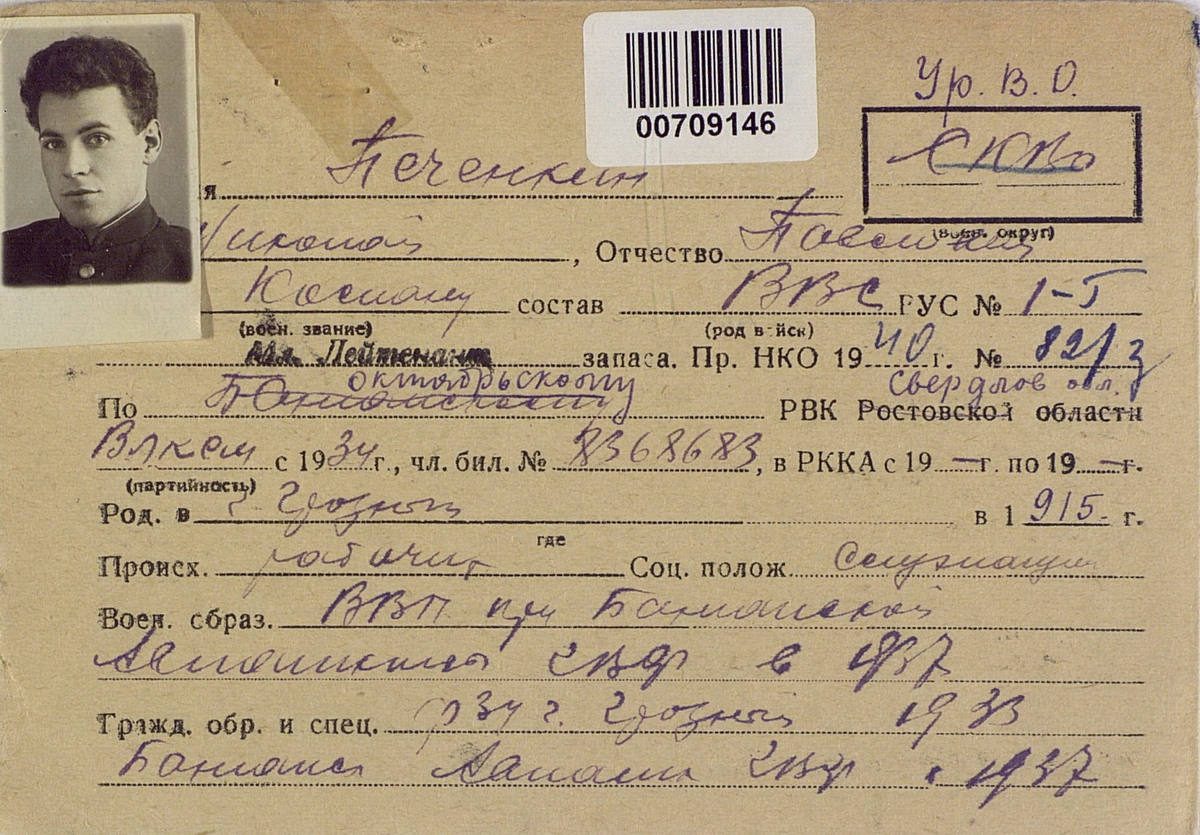 00709146
Ур. В. О.
СКВО
я Печенкин
(воен. округ)
Николай, Отчество Павлович
Команд состав ВВС РУС № 1-Т
(воен. звание) (род войск)
Мл. Лейтенант запаса. Пр. НКО 1940 г. № 8213
октябрьскому Свердлов обл.
По Батайскому РВК Ростовской области
Влксм с 1934 г., чл. бил. № 8368683, в РККА с 19— г. по 19— г.
(партийность)
Род. в г. Грозный в 1915 г.
где
Происх. рабочий Соц. полож. Служащий
Воен. образ. ВВП при Батайской
Авиашколы ГВФ в 1937
Гражд. обр. и спец. г. Грозный 1933
Батайск ГВФ 1937